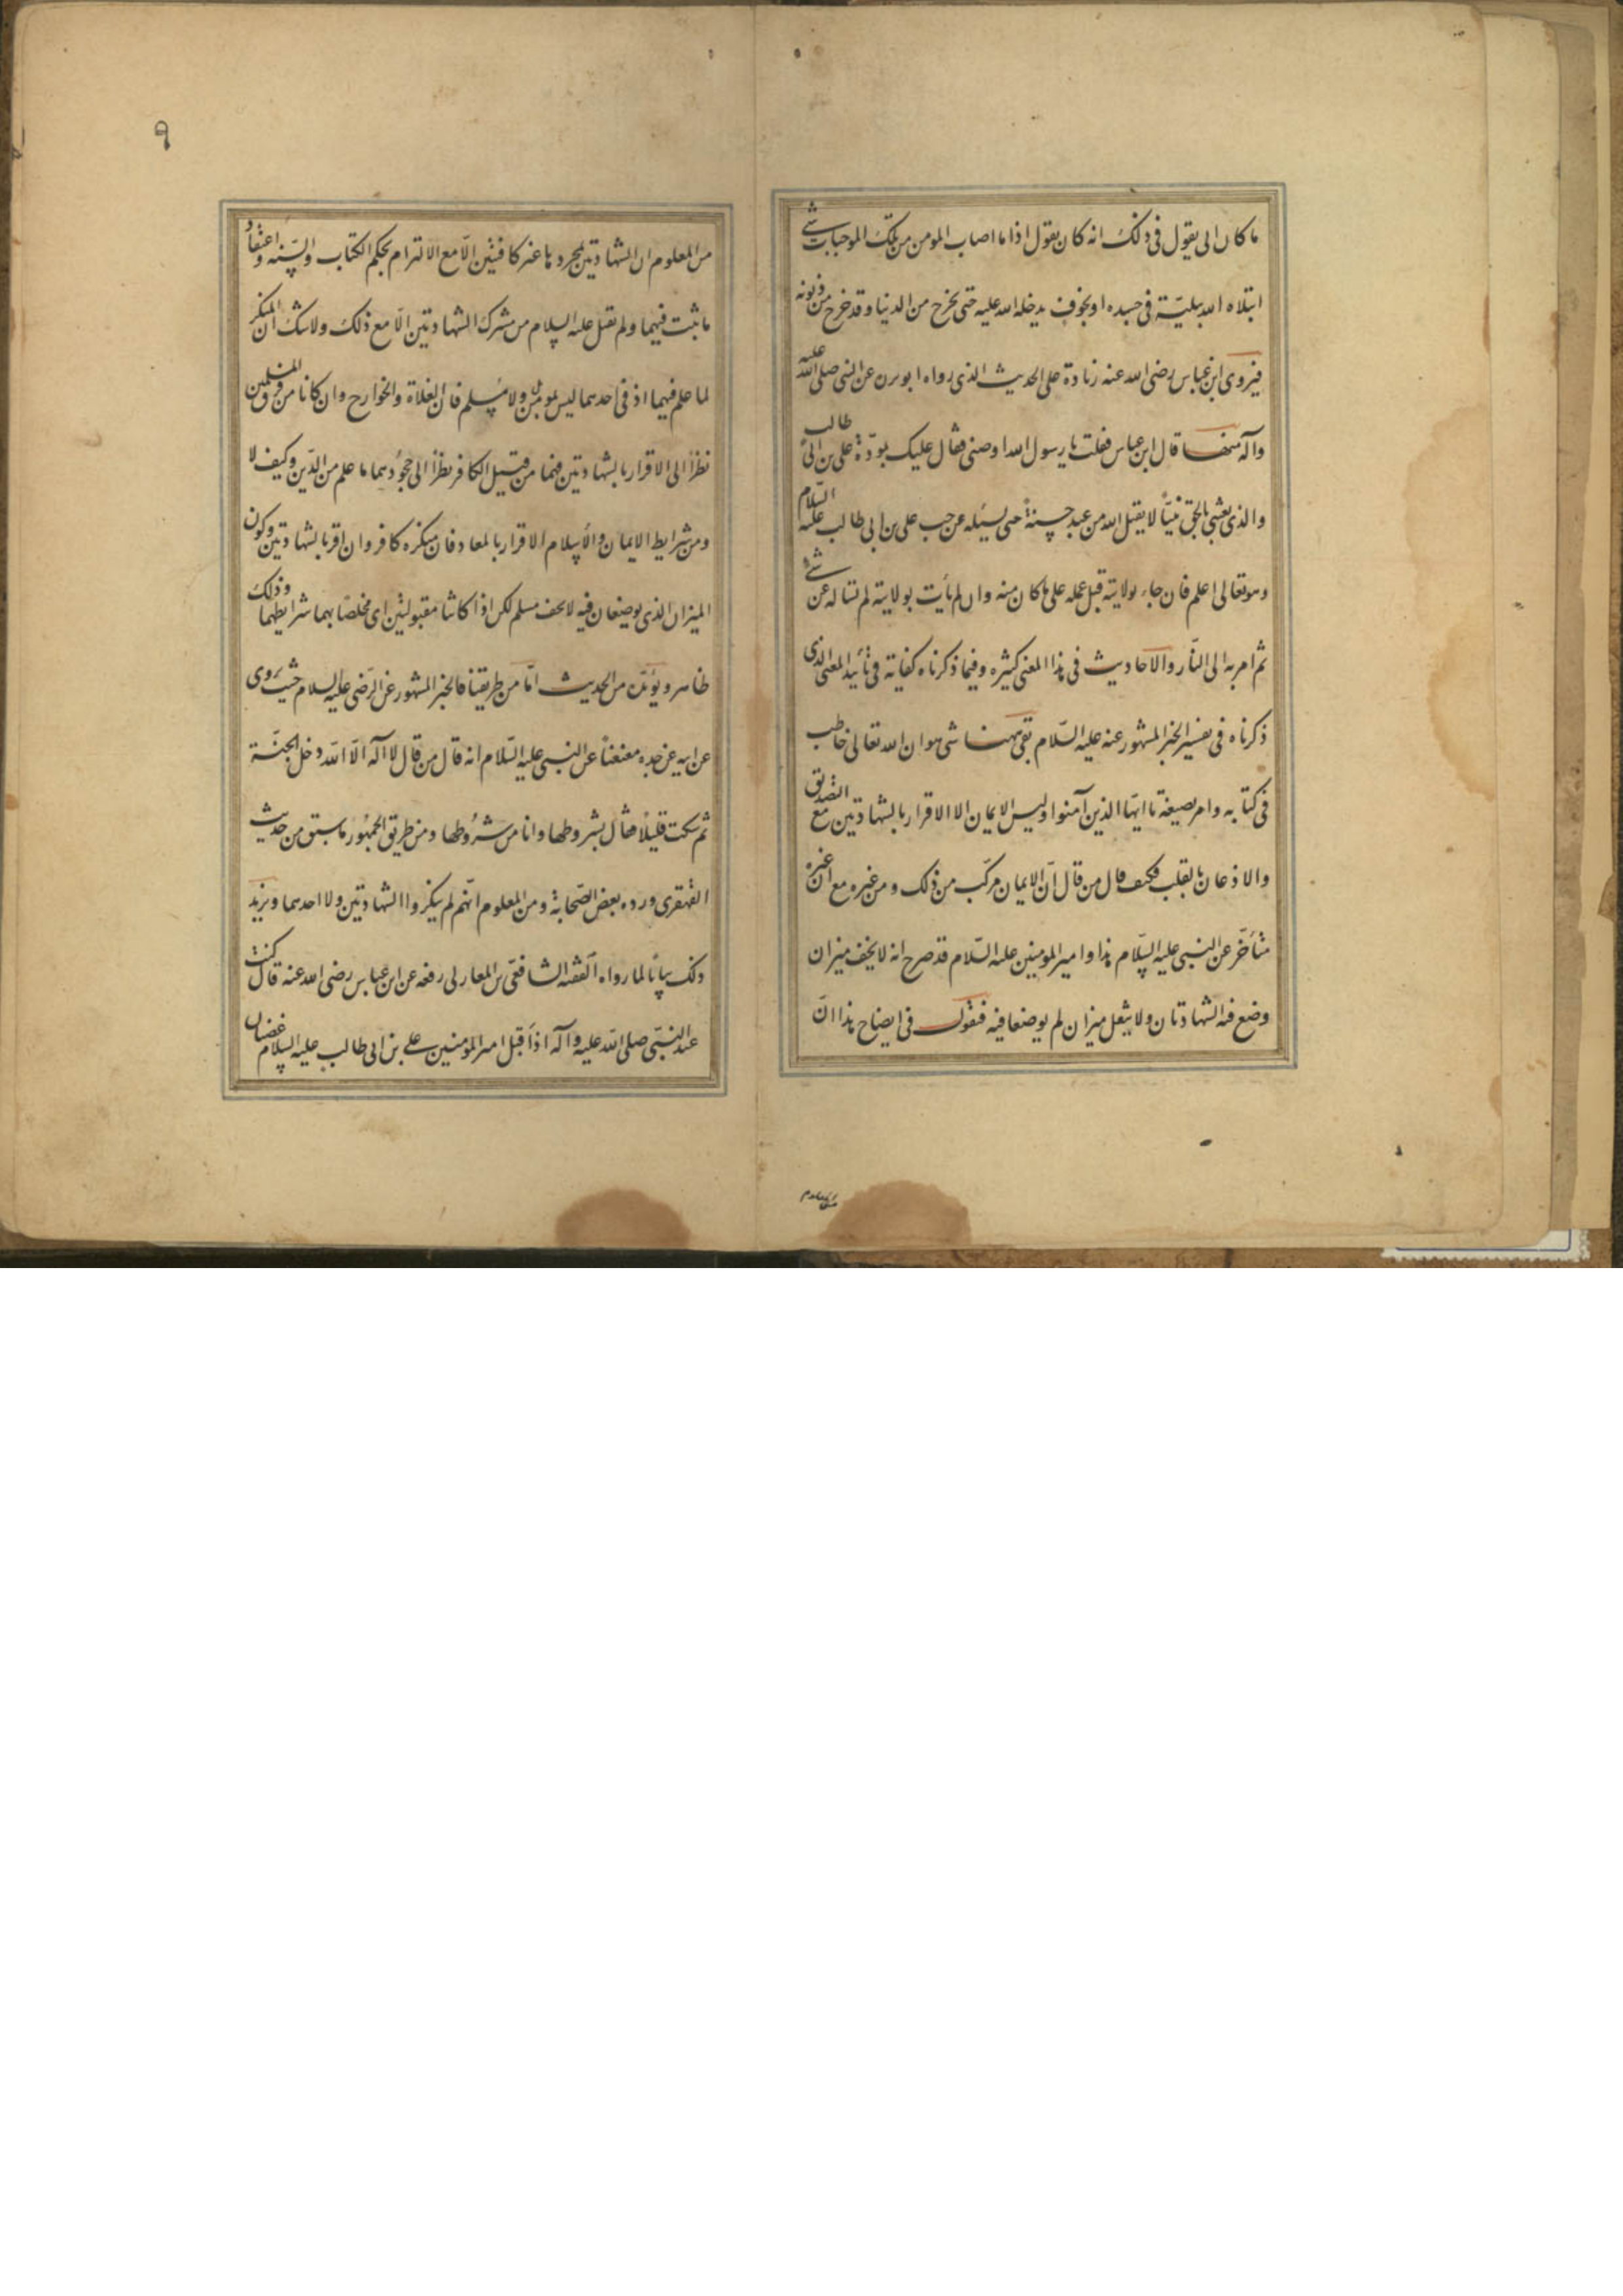 ما كان ابى يقول فى ذلك انه كان يقول اذا ما اصاب المومن من تلك الموجبات شئ
ابتلاه الله ببلية فى جسده او بخوف يدخله الله عليه حتى يخرج من الدنيا وقد خرج من ذنوبه
فيروى ابن عباس رضى الله عنه زيادة على الحديث الذى رواه عن النبى صلى الله عليه
وآله قال ابن عباس فقلت يا رسول الله اوصنى فقال عليك بمودّة على بن ابى طالب
والذى بعثنى بالحق نبيّاً لا يقبل الله من عبد حسنةً حتى يسئله عن حب على بن ابى طالب عليه السّلام
وهو تعالى اعلم فان جاء بولايته قبل عمله على ما كان منه وان لم يأت بولايته لم يساله عن شئ
ثم امر به الى النّار والاحاديث فى هذا المعنى كثيره وفيما ذكرناه كفاية فى تأييد المعنى الذى
ذكرناه فى تفسير الخبر المشهور عنه عليه السّلام بقى ههنا شى هو ان الله تعالى خاطب
فى كتابه وامر بصيغة يا ايّها الذين آمنوا وليس الايمان الا الاقرار بالشهادتين مع التصديق
والاذعان بالقلب فكيف قال من قال انّ الايمان مركّب من ذلك ومن غيره مع ان غيره
متأخّر عن النبى عليه السّلام هذا وامير المومنين عليه السّلام قد صرح انه لا يخف ميزان
وضع فيه الشهادتان ولا يثقل ميزان لم يوضعا فيه فنقول فى ايضاح هذا انّ
من المعلوم
٩
من المعلوم ان الشهادتين بمجردهما غير كافيتين الّا مع الالتزام بحكم الكتاب والسّنه واعتقاد
ما ثبت فيهما ولم يقبل عليه السلام من مشرك الشهادتين الّا مع ذلك ولا شك ان المنكر
لما علم فيهما اذ فى احدهما ليس بمومن ولا مسلم فان الغلاة والخوارج وان كانا من فرق المسلمين
نظراً الى الاقرار بالشهادتين فهما من قبيل الكافر نظراً الى جحودهما ما علم من الدّين وكيف لا
ومن شرايط الايمان والأسلام الاقرار بالمعاد فان منكره كافر وان اقر بالشهادتين وكون
الميزان الذى يوضعان فيه لا يخف مسلم لكن اذا كانتا مقبولتين اى مخلصًا بهما شرايطهما وذلك
ظاهر ويؤيّده من الحديث امّا من طريقنا فالخبر المشهور عن الرّضى عليه السلام حيث روى
عن ابيه عن جده معنعناً عن النبى عليه السّلام انه قال من قال لا اله الّا الله دخل الجنّة
ثم سكت قليلًا فقال بشروطها وانا من شروطها ومن طريق الجمهور ما سبق من حديث
القهقرى ورده بعض الصّحابة ومن المعلوم انّهم لم ينكروا الشهادتين ولا احدهما ويزيد
ذلك بيانًا لما رواه الفقيه الشافعى بن المغازلى رفعه عن ابن عباس رضى الله عنه قال كنت
عند النّبى صلى الله عليه وآله اذ اقبل امير المومنين على بن ابى طالب عليه السلام غضبان